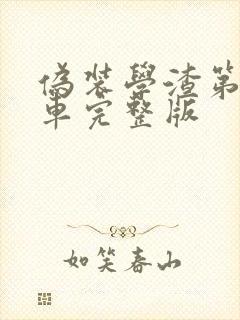 偽裝學渣第
車完整版
如笑春山